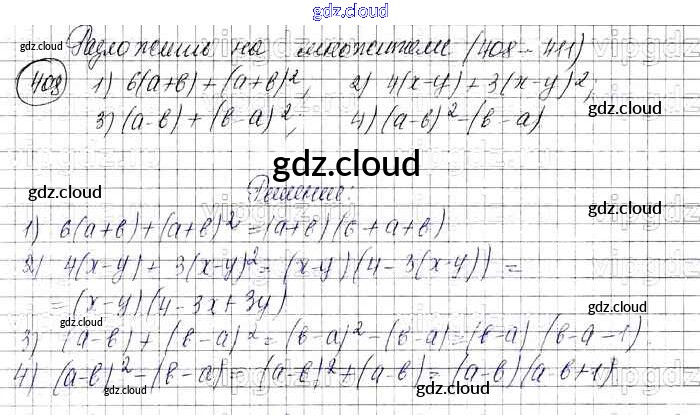 gdz.cloud
Разложить на множители (408 - 411)
408 1) 6(а+в) + (а+в)², 2) 4(х-у) + 3(х-у)²;
3) (а-в) + (в-а)²; 4) (а-в)² - (в-а)
gdz.cloud
Решение:
1) 6(а+в) + (а+в)² = (а+в)(6+а+в)
2) 4(х-у) + 3(х-у)² = (х-у)(4-3(х-у)) =
= (х-у)(4-3х+3у)
3) (а-в) + (в-а)² = (в-а)² - (в-а) = (в-а)(в-а-1).
4) (а-в)² - (в-а) = (а-в)² + (а-в) = (а-в)(а-в+1)
gdz.cloud
gdz.cloud
gdz.cloud
gdz.cloud
gdz.cloud
gdz.cloud
gdz.cloud
gdz.cloud